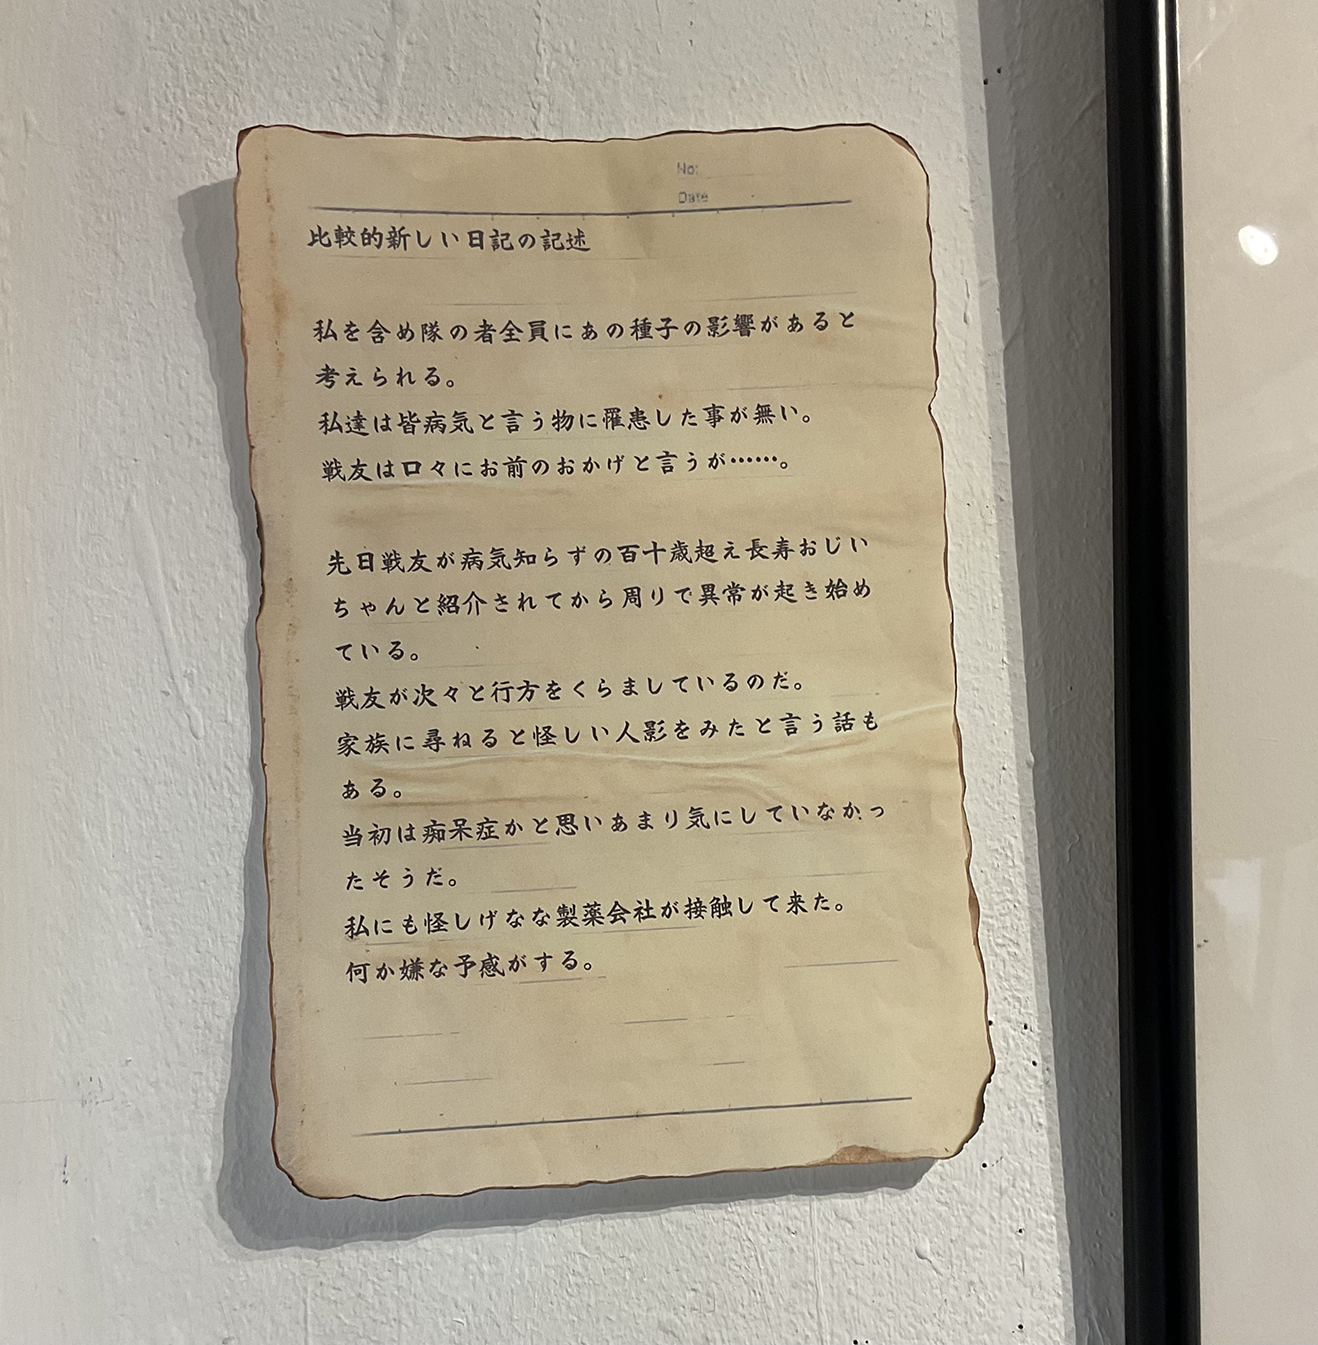 No:
Date
比較的新しい日記の記述
私を含め隊の者全員にあの種子の影響があると
考えられる。
私達は皆病気と言う物に罹患した事が無い。
戦友は口々にお前のおかげと言うが……。
先日戦友が病気知らずの百十歳超え長寿おじい
ちゃんと紹介されてから周りで異常が起き始め
ている。
戦友が次々と行方をくらましているのだ。
家族に尋ねると怪しい人影をみたと言う話も
ある。
当初は痴呆症かと思いあまり気にしていなかっ
たそうだ。
私にも怪しげなな製薬会社が接触して来た。
何か嫌な予感がする。